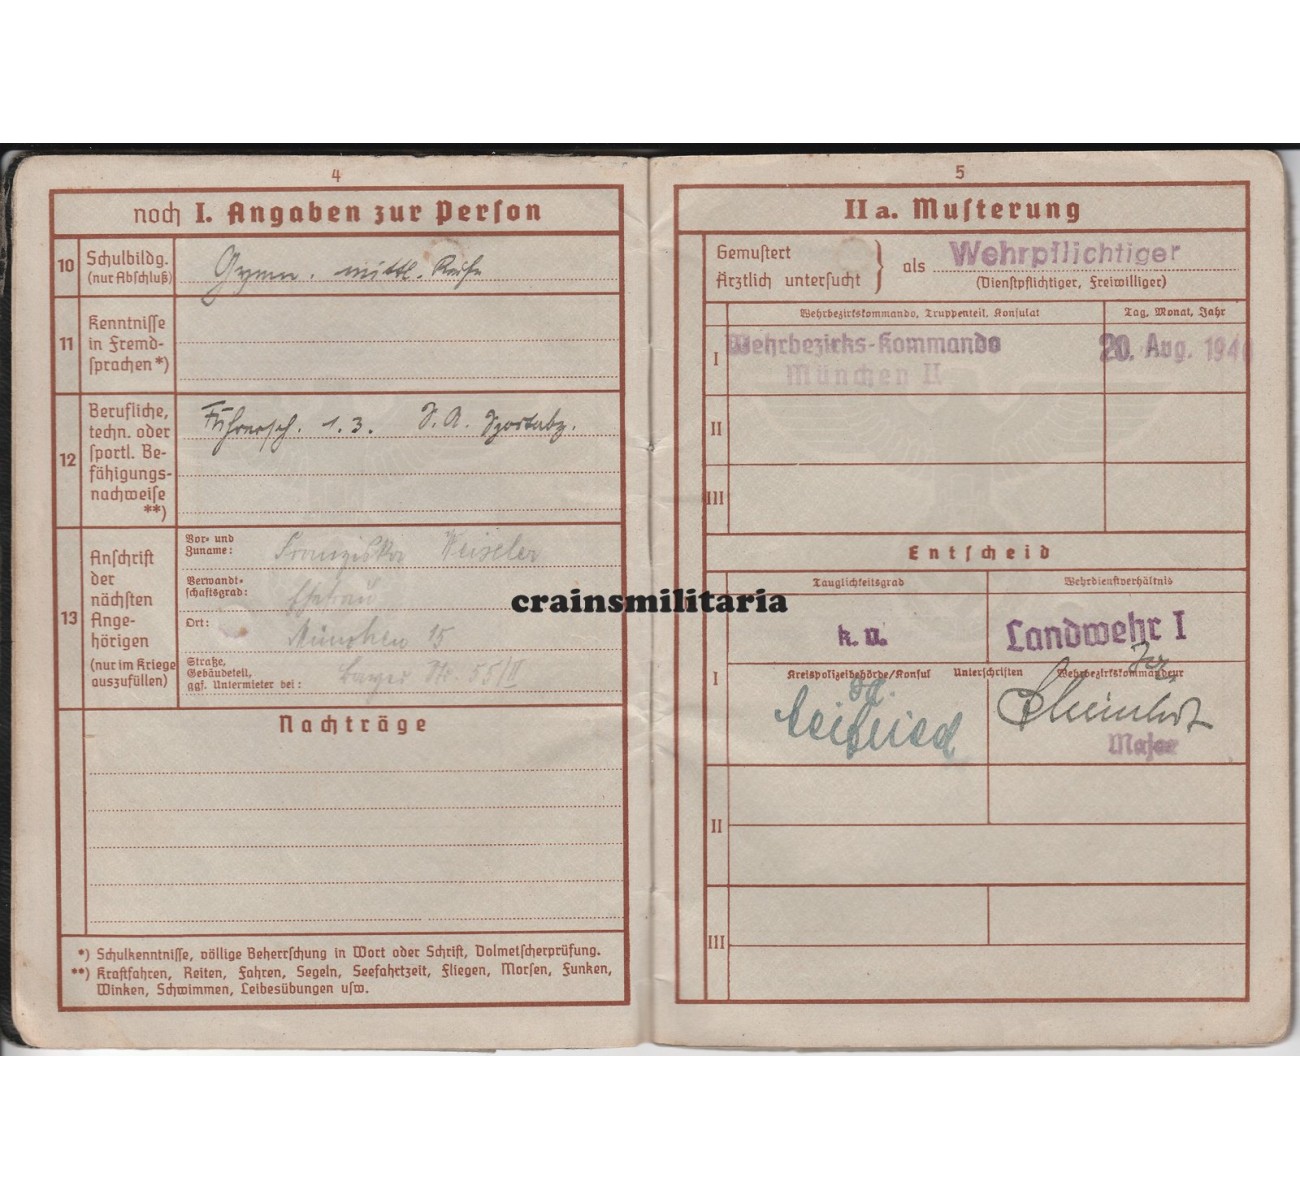 4
noch I. Angaben zur Person
10
Schulbildg.
(nur Abschluß)
Gymn. mittl. Reife
11
Kenntnisse
in Fremd-
sprachen *)
12
Berufliche,
techn. oder
sportl. Be-
fähigungs-
nachweise
**)
Führersch. 1. 3. S. A. Sportabz.
13
Anschrift
der
nächsten
Ange-
hörigen
(nur im Kriege
auszufüllen)
Vor- und
Zuname:
Franziska
Verwandt-
schaftsgrad:
Ehefrau
Ort:
München 15
Straße,
Gebäudeteil,
ggf. Untermieter bei:
Str. 55/II
Nachträge
*) Schulkenntnisse, völlige Beherrschung in Wort oder Schrift, Dolmetscherprüfung.
**) Kraftfahren, Reiten, Fahren, Segeln, Seefahrtzeit, Fliegen, Morsen, Funken,
Winken, Schwimmen, Leibesübungen usw.
5
II a. Musterung
Gemustert
Ärztlich untersucht
als
Wehrpflichtiger
(Dienstpflichtiger, Freiwilliger)
Wehrbezirkskommando, Truppenteil, Konsulat
Tag, Monat, Jahr
I
Wehrbezirks-Kommando
München II
20. Aug. 1940
II
III
Entscheid
Tauglichkeitsgrad
Wehrdienstverhältnis
I
k. v.
Landwehr I
Kreispolizeibehörde/Konsul
Unterschriften
Wehrbezirkskommandeur
Major
II
III
crainsmilitaria